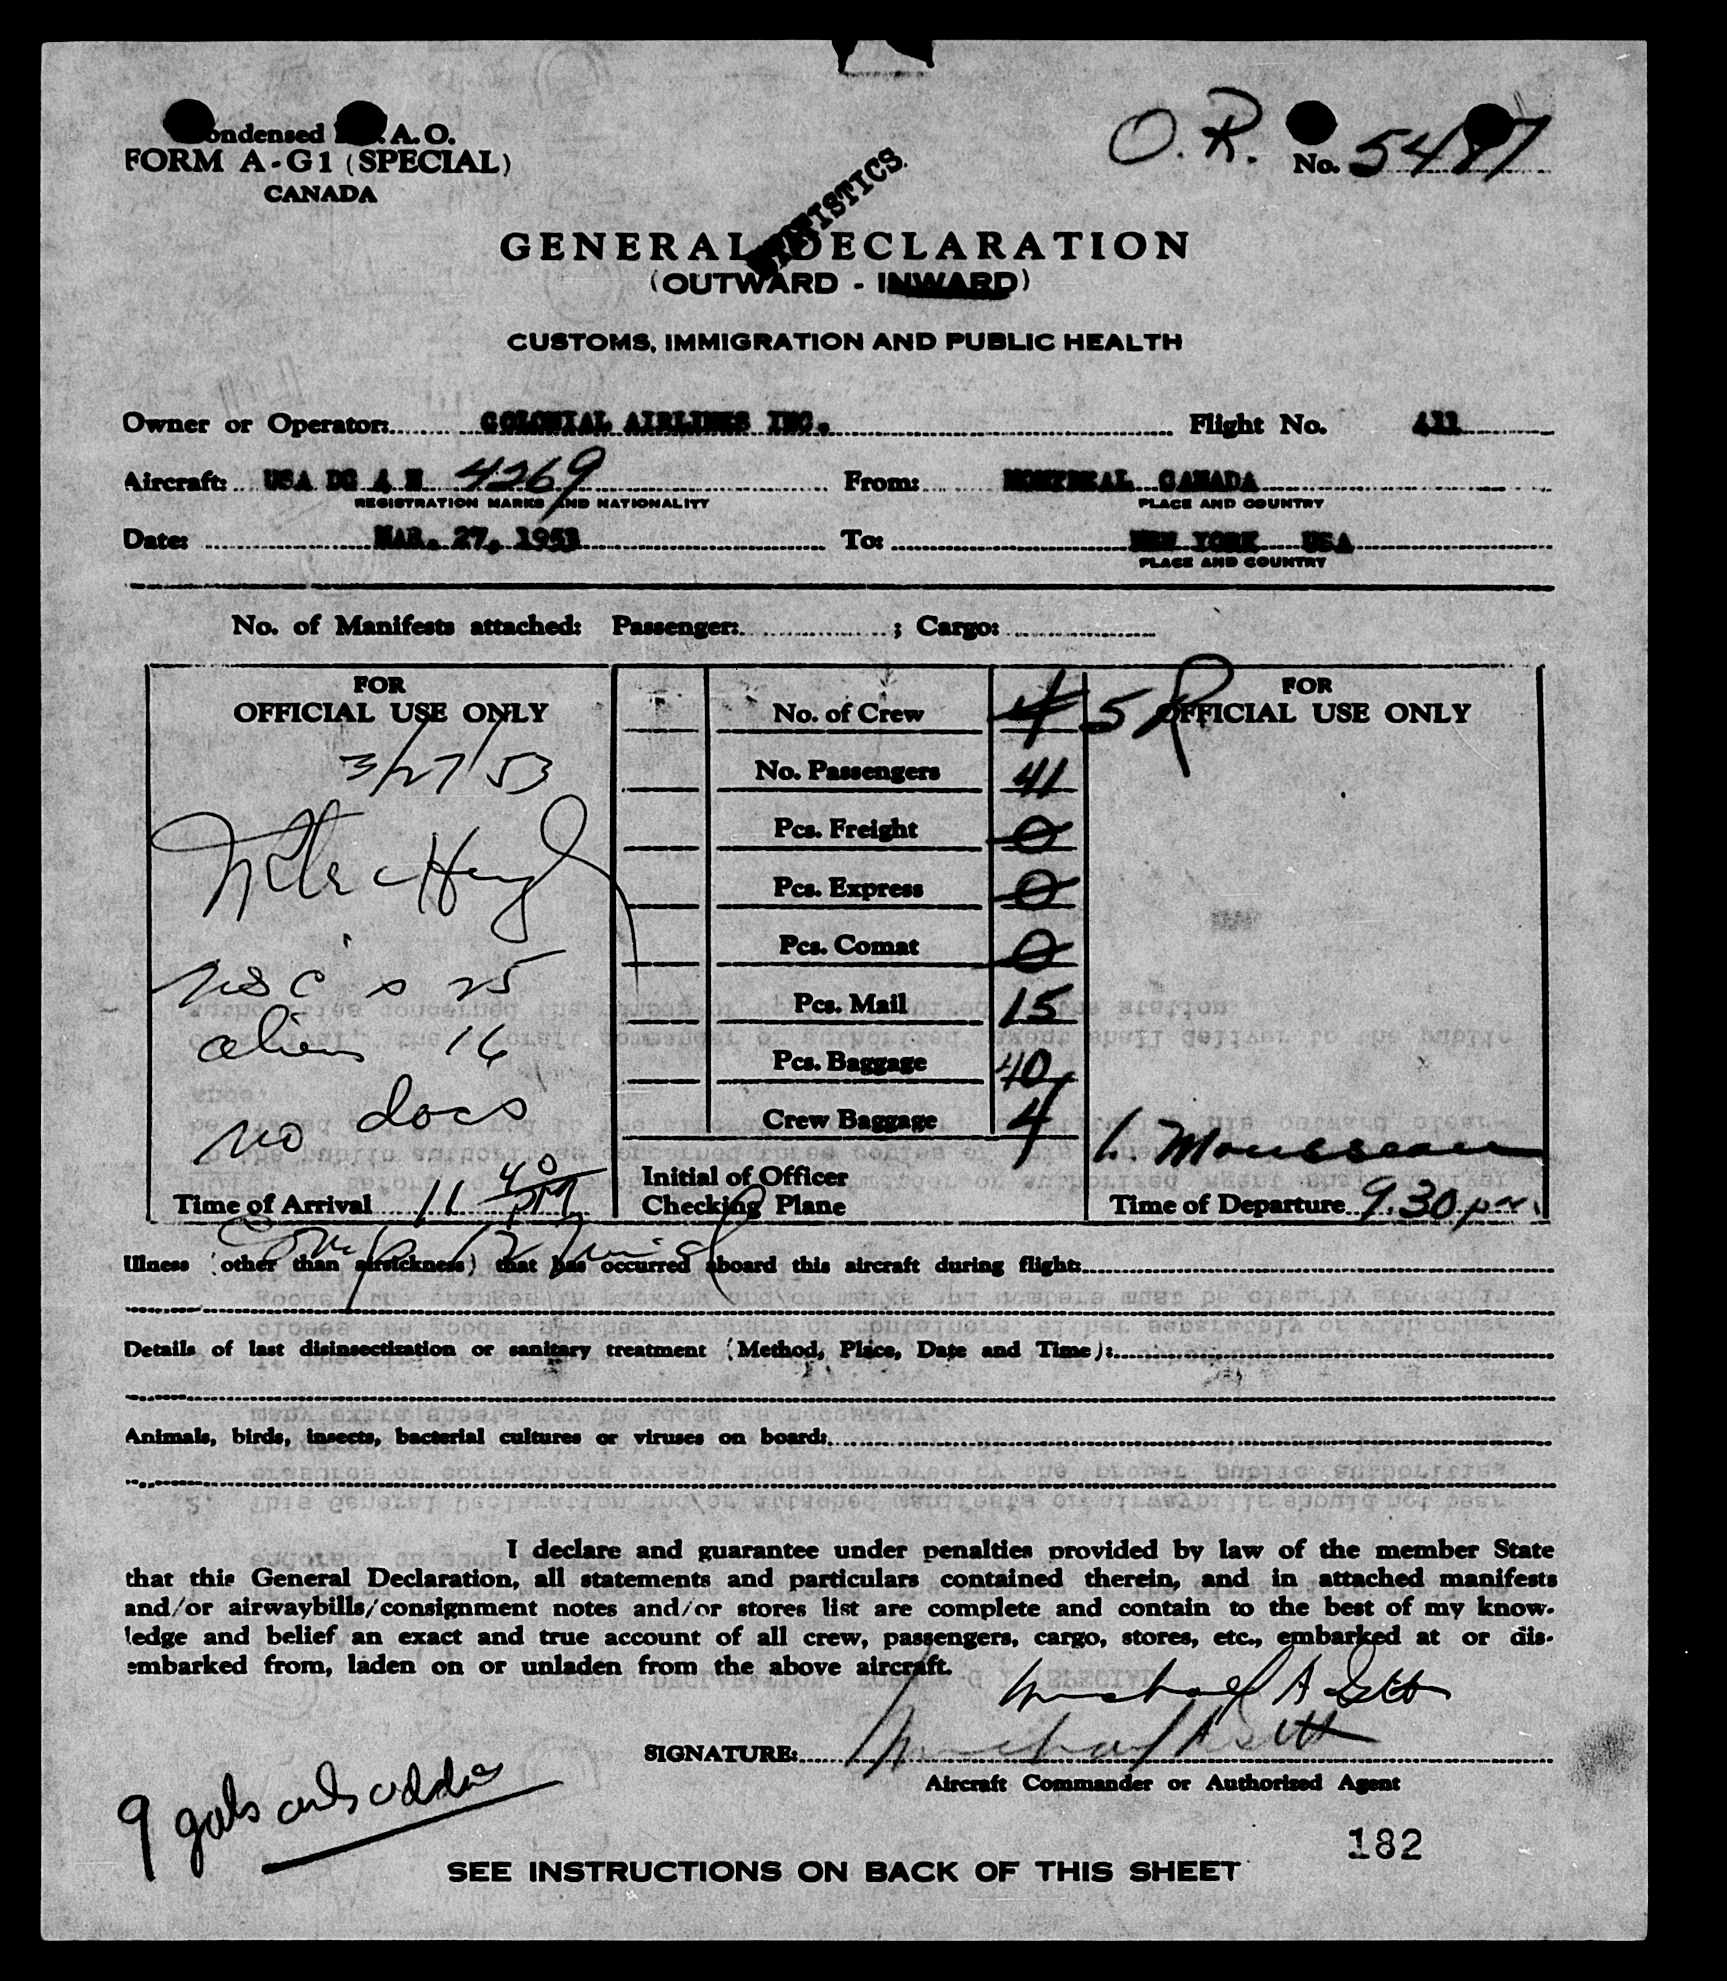 ondensed A. O.
FORM A-G1 (SPECIAL)
CANADA
O. R. No.
STATISTICS
GENERAL DECLARATION
(OUTWARD - INWARD)
CUSTOMS, IMMIGRATION AND PUBLIC HEALTH
Owner or Operator: COLONIAL AIRLINES INC. Flight No. 411
Aircraft: USA DC 4 N 4269 From: MONTREAL CANADA
REGISTRATION MARKS AND NATIONALITY PLACE AND COUNTRY
Date: MAR. 27, 1953 To: NEW YORK USA
PLACE AND COUNTRY
No. of Manifests attached: Passenger: ; Cargo:
FOR
OFFICIAL USE ONLY
3/27/53
USC's 25
aliens 16
no docs
Time of Arrival 11 40 PM
No. of Crew 4 5
No. Passengers 41
Pcs. Freight 0
Pcs. Express 0
Pcs. Comat 0
Pcs. Mail 15
Pcs. Baggage 40
Crew Baggage 4
Initial of Officer
Checking Plane
FOR
OFFICIAL USE ONLY
L. Mousseau
Time of Departure 9.30 pm
Illness (other than airsickness) that has occurred aboard this aircraft during flight:
Details of last disinsectization or sanitary treatment (Method, Place, Date and Time):
Animals, birds, insects, bacterial cultures or viruses on board:
I declare and guarantee under penalties provided by law of the member State
that this General Declaration, all statements and particulars contained therein, and in attached manifests
and/or airwaybills/consignment notes and/or stores list are complete and contain to the best of my know-
ledge and belief an exact and true account of all crew, passengers, cargo, stores, etc., embarked at or dis-
embarked from, laden on or unladen from the above aircraft.
Michael A
SIGNATURE: Michael A
Aircraft Commander or Authorized Agent
9
182
SEE INSTRUCTIONS ON BACK OF THIS SHEET